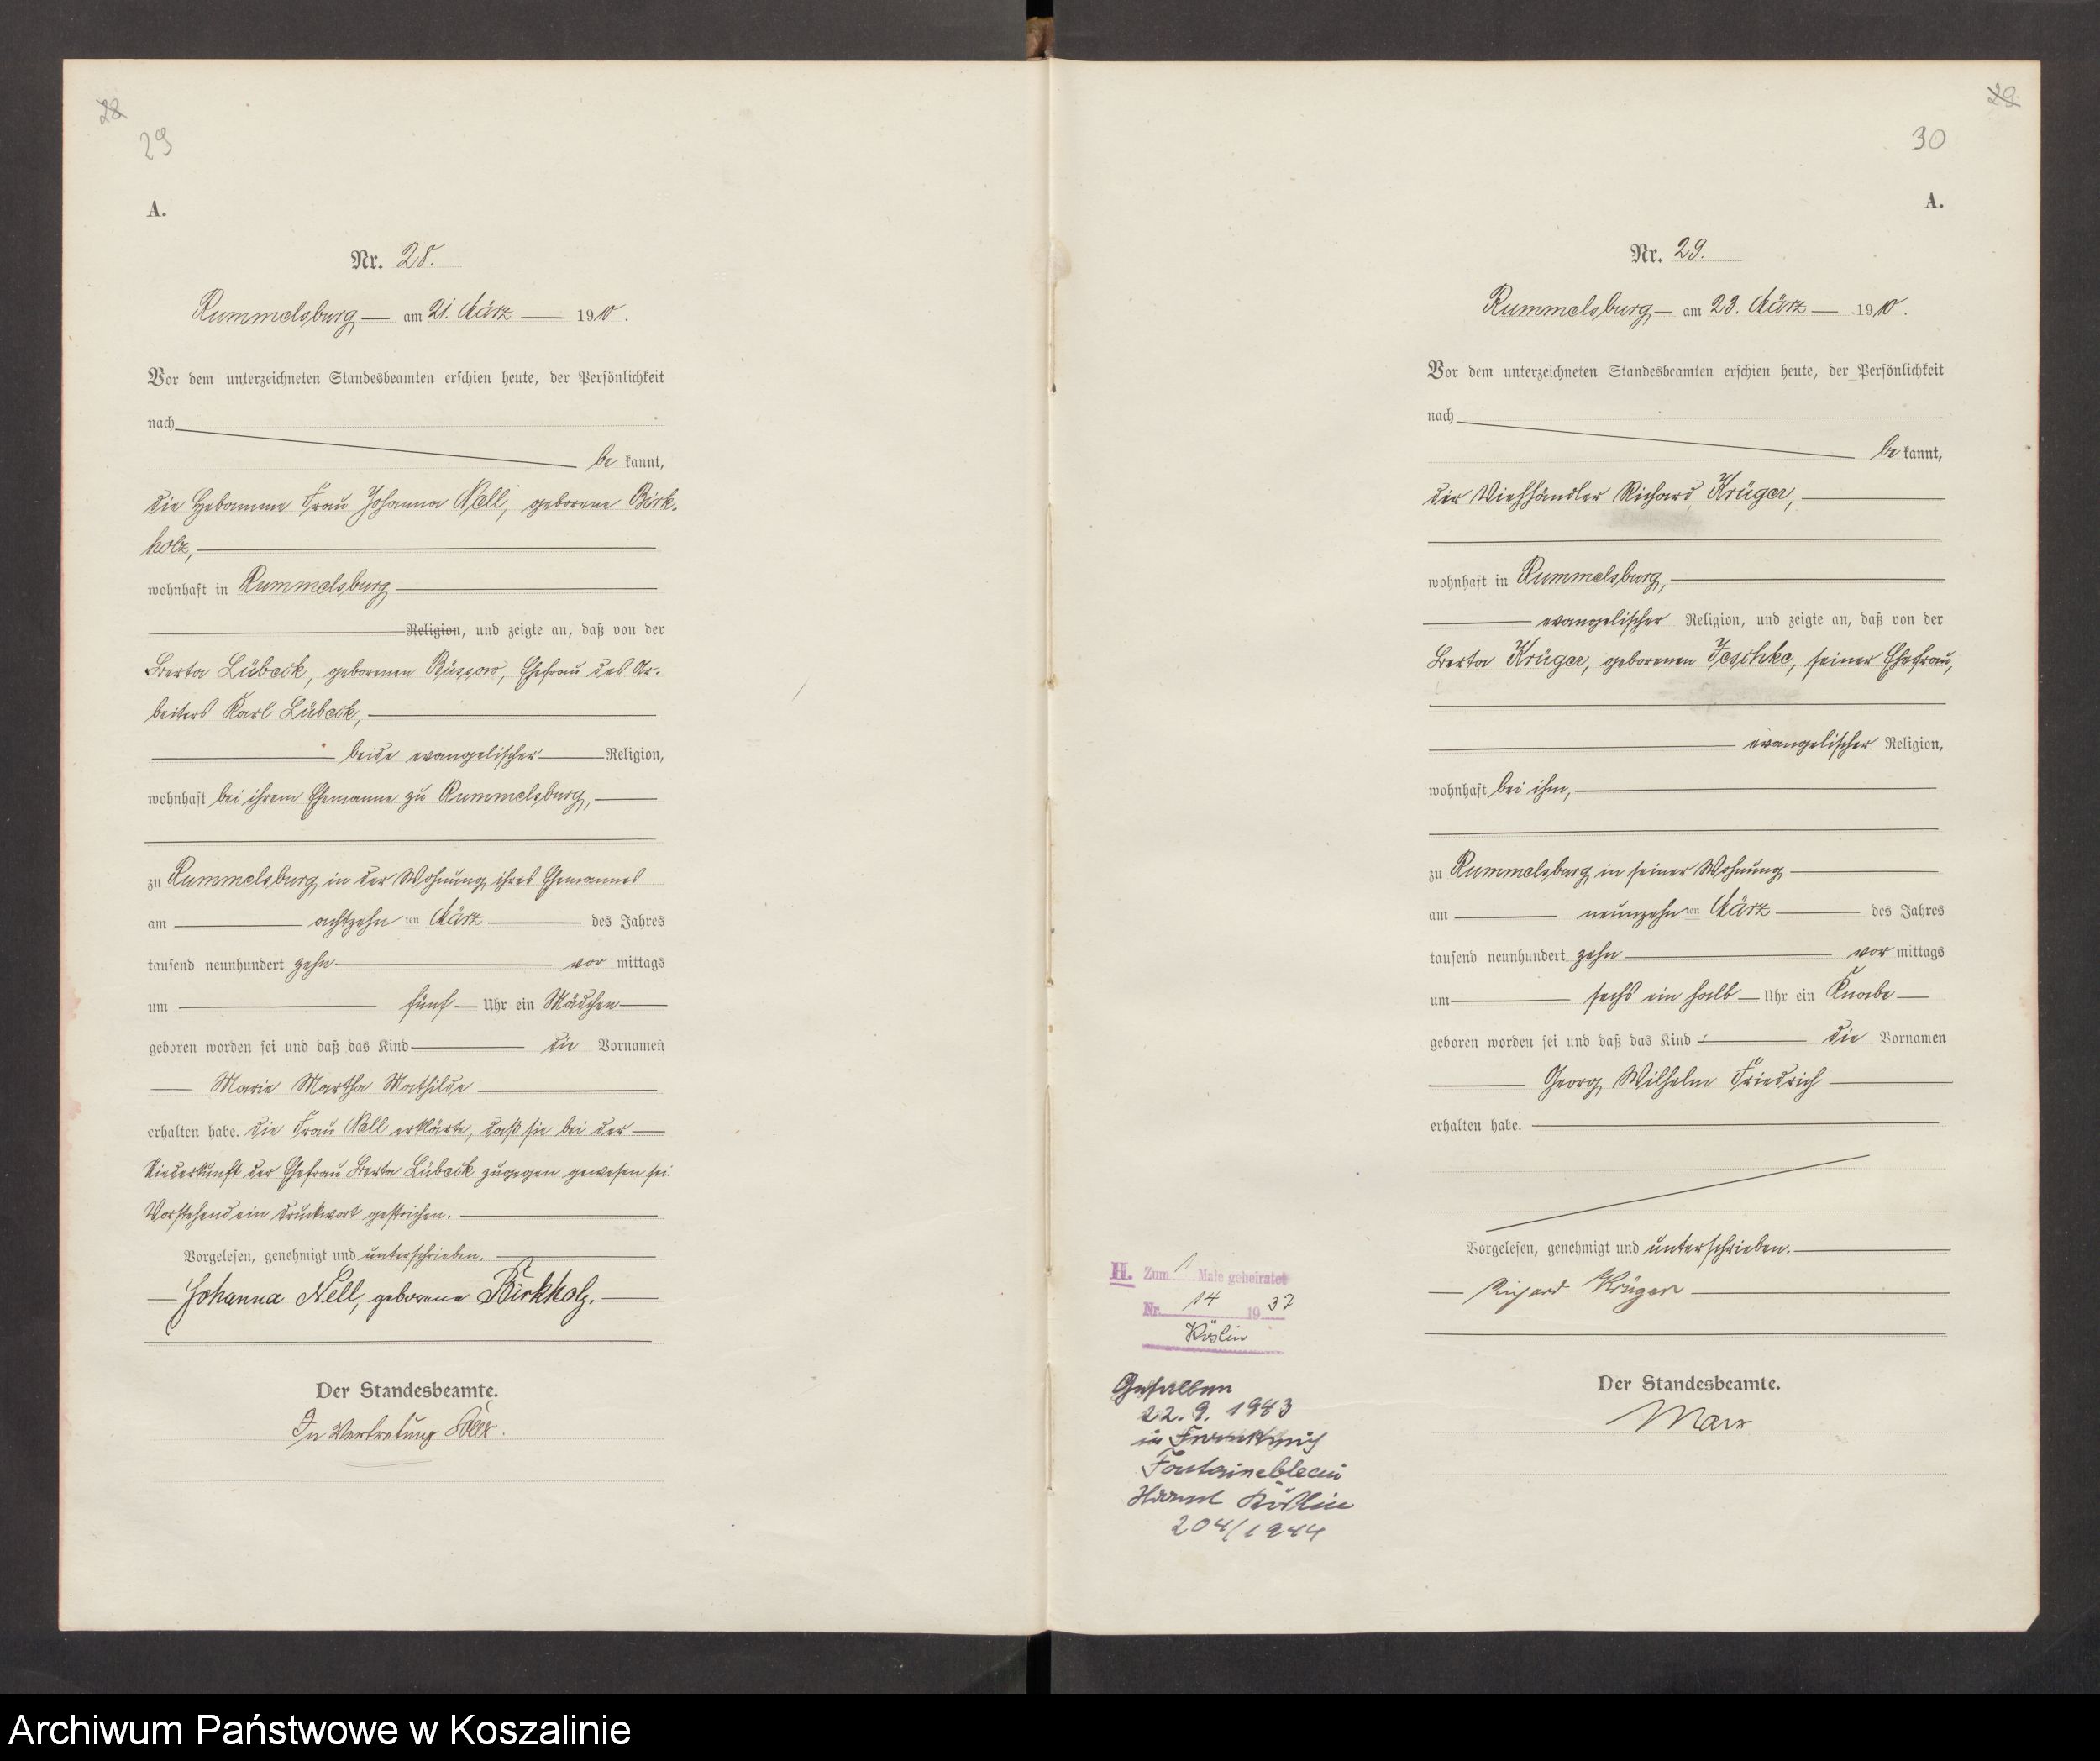 28
29
A.
Nr. 28.
Rummelsburg am 21. März 1910.
Vor dem unterzeichneten Standesbeamten erschien heute, der Persönlichkeit
nach
be kannt,
die Hebamme Frau Johanna Nell, geborene Birk-
holz,
wohnhaft in Rummelsburg
Religion, und zeigte an, daß von der
Berta Lübeck, geborenen Büssow, Ehefrau des Ar-
beiters Karl Lübeck,
beide evangelischer Religion,
wohnhaft bei ihrem Ehemanne zu Rummelsburg,
zu Rummelsburg in der Wohnung ihres Ehemannes
am achtzehn ten März des Jahres
tausend neunhundert zehn vor mittags
um fünf Uhr ein Mädchen
geboren worden sei und daß das Kind die Vornamen
Marie Martha Mathilde
erhalten habe. Die Frau Nell erklärte, daß sie bei der
Niederkunft der Ehefrau Berta Lübeck zugegen gewesen sei.
Vorstehend ein Druckwort gestrichen.
Vorgelesen, genehmigt und unterschrieben.
Johanna Nell, geborene Birkholz.
Der Standesbeamte.
In Vertretung
29
30
A.
Nr. 29.
Rummelsburg am 23. März 1910.
Vor dem unterzeichneten Standesbeamten erschien heute, der Persönlichkeit
nach
be kannt,
der Viehhändler Richard Krüger,
wohnhaft in Rummelsburg,
evangelischer Religion, und zeigte an, daß von der
Berta Krüger, geborenen Jeschke, seiner Ehefrau,
evangelischer Religion,
wohnhaft bei ihm,
zu Rummelsburg in seiner Wohnung
am neunzehn ten März des Jahres
tausend neunhundert zehn vor mittags
um sechs ein halb Uhr ein Knabe
geboren worden sei und daß das Kind die Vornamen
Georg Wilhelm Friedrich
erhalten habe.
Vorgelesen, genehmigt und unterschrieben.
Richard Krüger
Der Standesbeamte.
Marx
H. Zum 1 Male geheiratet
Nr. 14 1937
Köslin
Gefallen
22. 9. 1943
in Frankreich
Fontainebleau
Köslin
204/1944
Archiwum Państwowe w Koszalinie